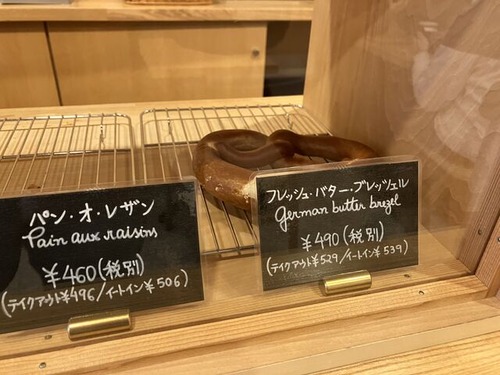 パン・オ・レザン
Pain aux raisins
¥460(税別)
(テイクアウト¥496/イートイン¥506)
フレッシュ・バター・ブレッツェル
German butter brezel
¥490(税別)
(テイクアウト¥529/イートイン¥539)